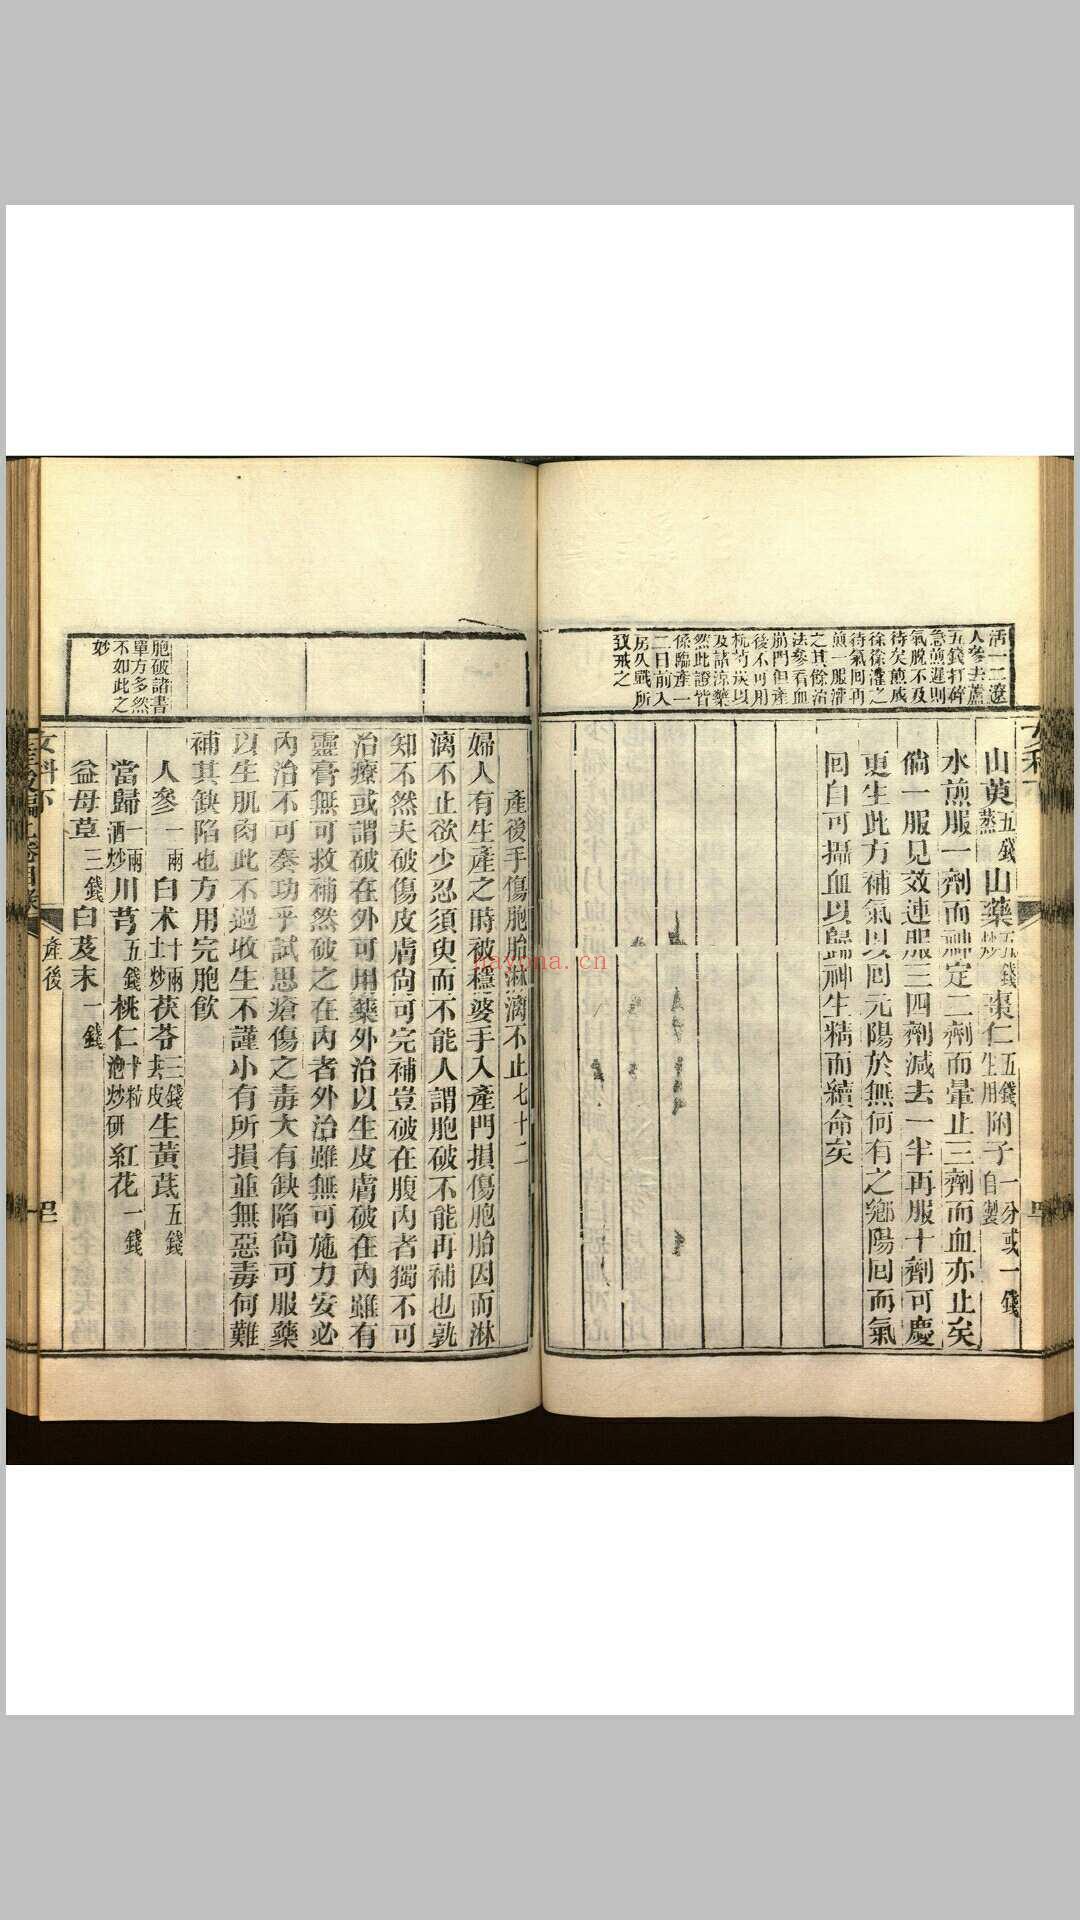 活一二遼
人參去蘆
五錢打碎
急煎遲則
氣脫不及
待矣煎成
徐徐灌之
待氣回再
煎一服灌
之其餘治
法參看血
崩門但產
後不可用
杭芍炭以
及諸涼藥
然此證皆
係臨產一
二日前入
房久戰所
致戒之
山萸五錢蒸山藥五錢炒棗仁五錢生用附子一分或一錢自製
水煎服一劑而神定二劑而暈止三劑而血亦止矣
倘一服見效連服三四劑減去一半再服十劑可慶
更生此方補氣以回元陽於無何有之鄉陽回而氣
回自可攝血以歸神生精而續命矣
胞破諸書
單方多然
不如此之
妙
產後手傷胞胎淋漓不止七十二
婦人有生產之時被穩婆手入產門損傷胞胎因而淋
漓不止欲少忍須臾而不能人謂胞破不能再補也孰
知不然夫破傷皮膚尚可完補豈破在腹內者獨不可
治療或謂破在外可用藥外治以生皮膚破在內雖有
靈膏無可救補然破之在內者外治雖無可施力安必
內治不可奏功乎試思瘡傷之毒大有缺陷尚可服藥
以生肌肉此不過收生不謹小有所損並無惡毒何難
補其缺陷也方用完胞飲
人參一兩白术十兩土炒茯苓三錢去皮生黃芪五錢
當歸一兩酒炒川芎五錢桃仁十粒泡炒研紅花一錢
益母草三錢白芨末一錢
女科下
產後
hayona.cn